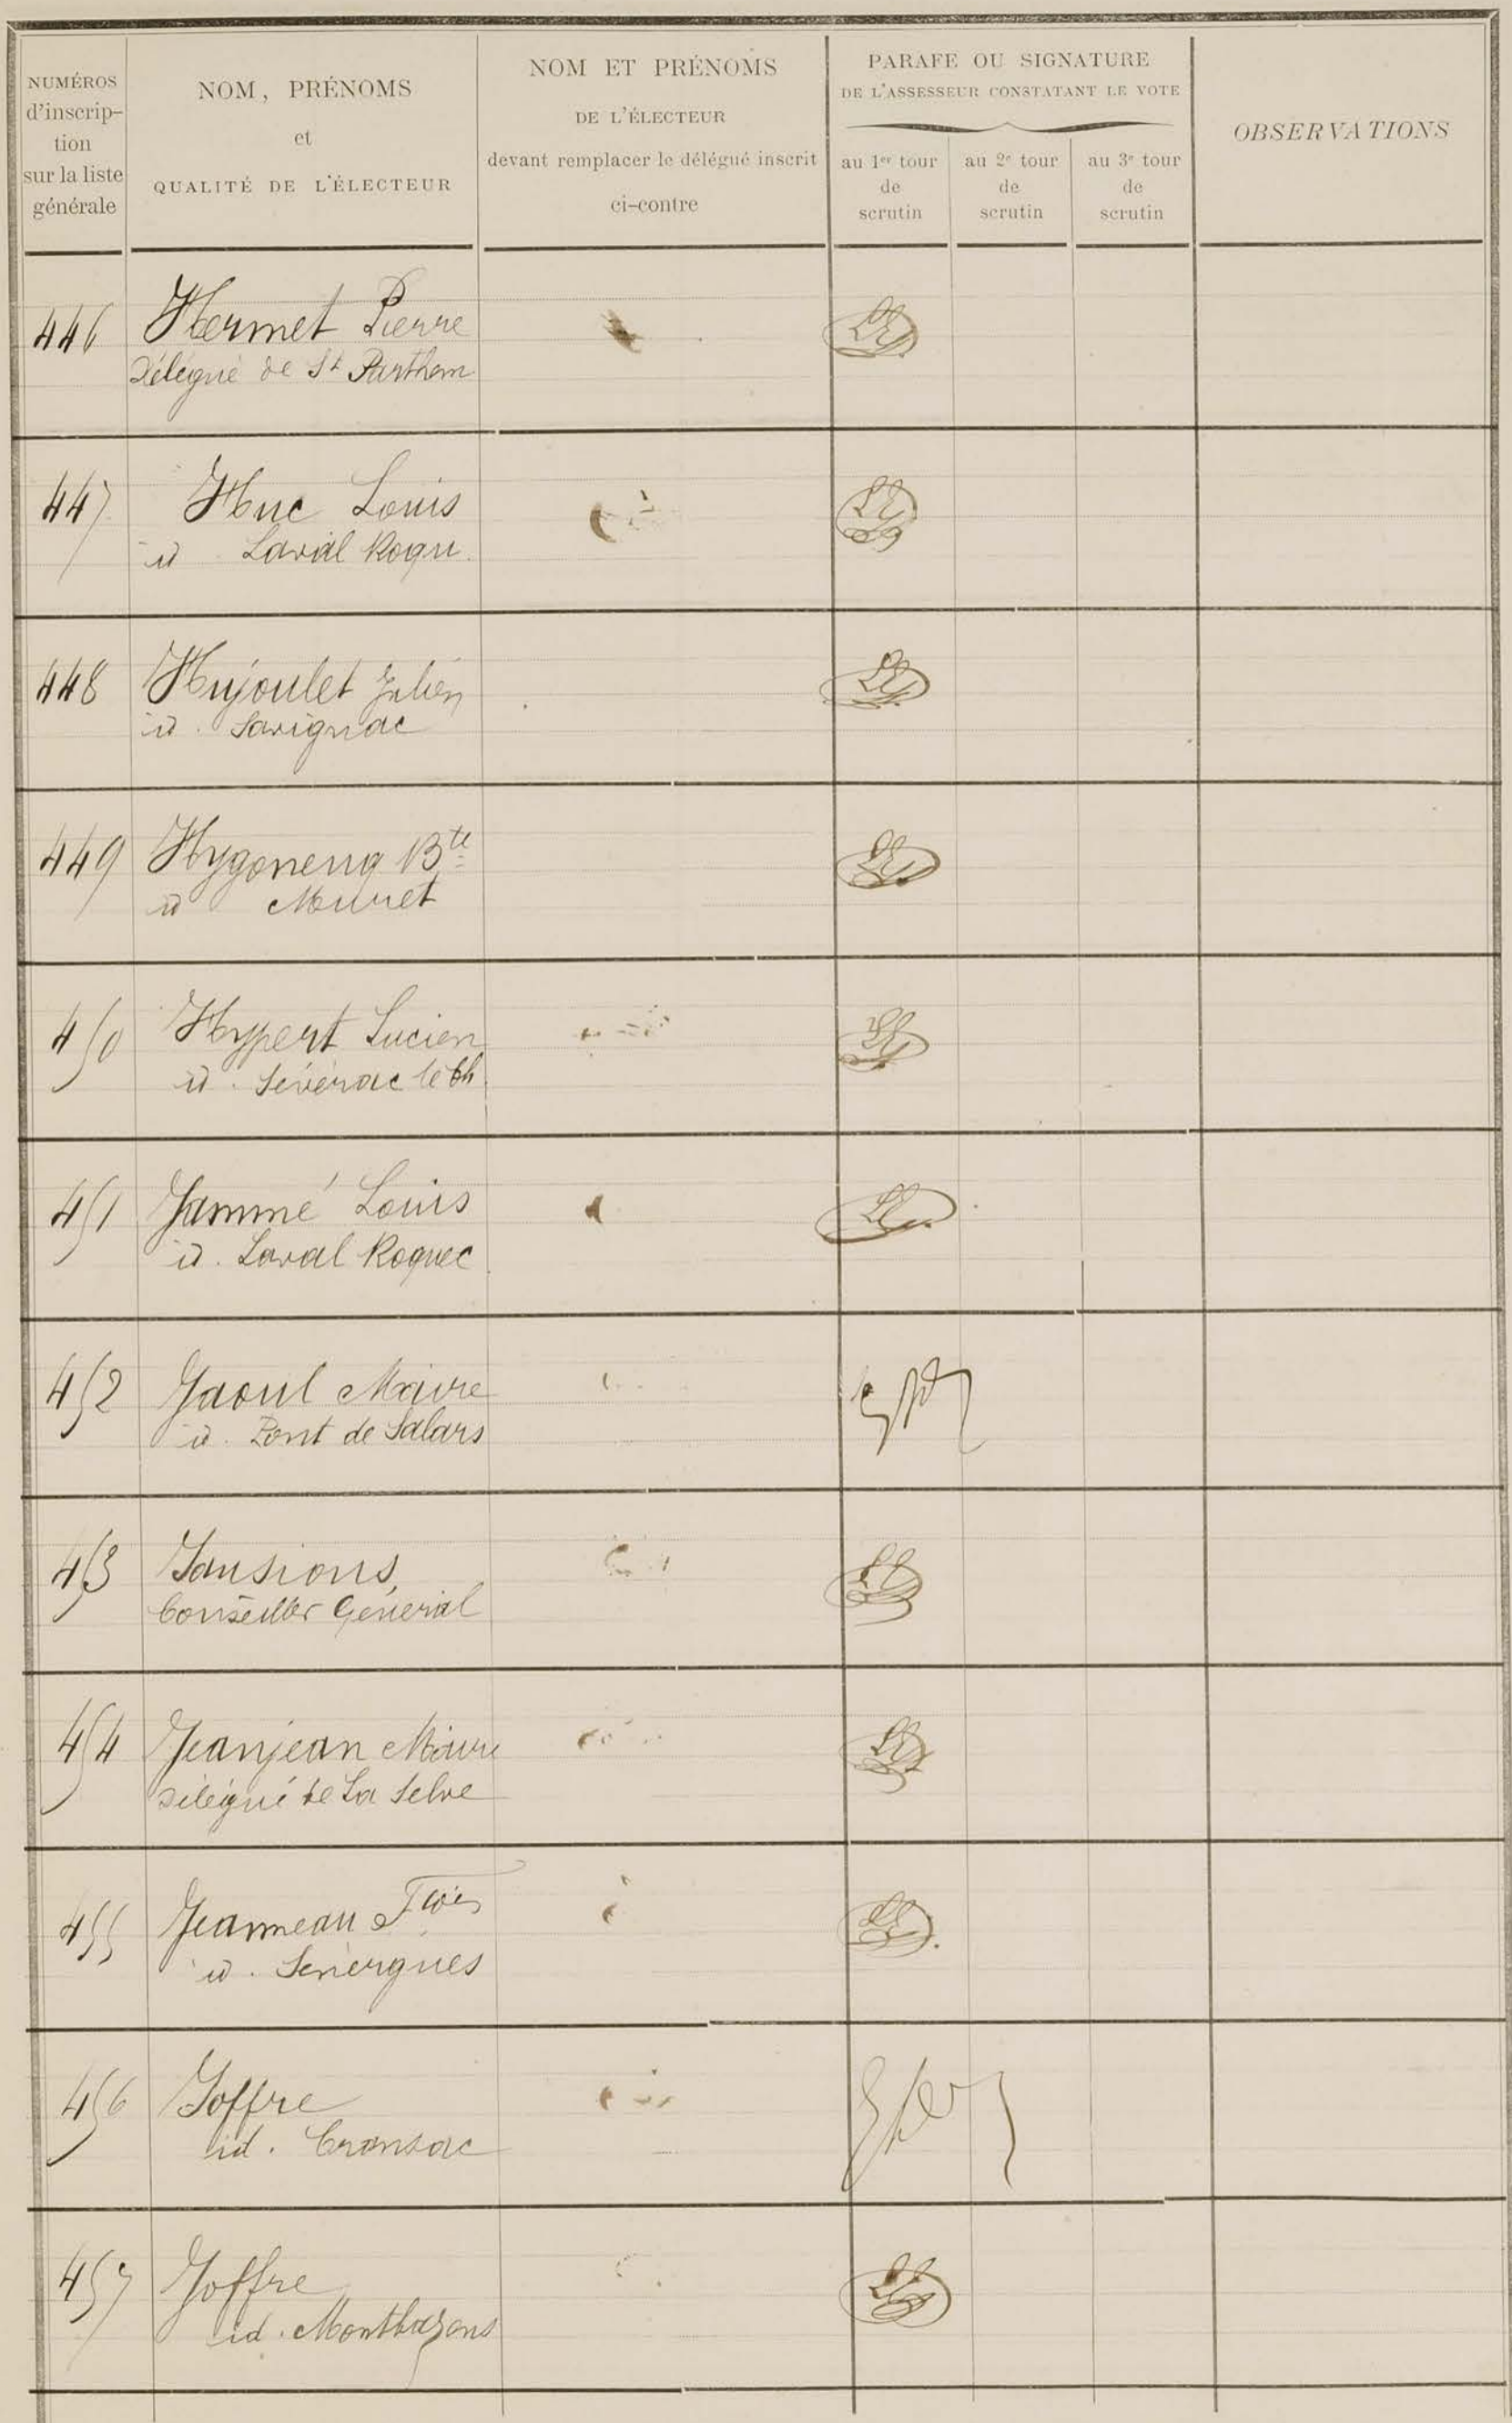 NUMÉROS
d'inscrip-
tion
sur la liste
générale
NOM, PRÉNOMS
et
QUALITÉ DE L'ÉLECTEUR
NOM ET PRÉNOMS
DE L'ÉLECTEUR
devant remplacer le délégué inscrit
ci-contre
PARAFE OU SIGNATURE
DE L'ASSESSEUR CONSTATANT LE VOTE
au 1er tour
de
scrutin
au 2e tour
de
scrutin
au 3e tour
de
scrutin
OBSERVATIONS
446 Hermet Pierre
Délégué de St Parthem
447 Huc Louis
id Laval Roqu
448 Hujoulet Julien
id. Savignac
449 Hygonenq Bte
id Muret
450 Hypert Lucien
id. Sévérac le Ch
451 Jammé Louis
id. Laval Roquec
452 Jaoul Maire
id. Pont de Salars
453 Jausions,
Conseiller Général
454 Jeanjean Maire
délégué de La Selve
455 Jeanneau Fçois
id. Sénergues
456 Joffre
id. Cransac
457 Joffre
id. Montbazens